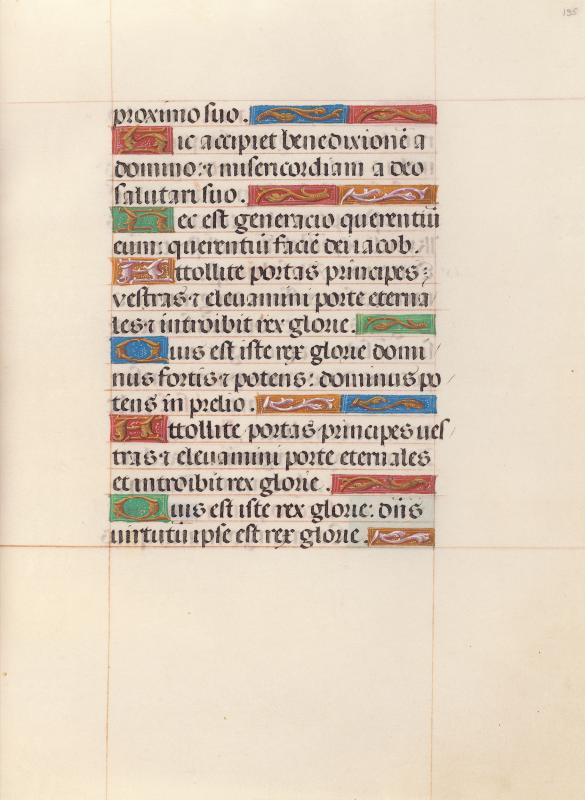 195
proximo suo.
Hic accipiet benedixionē a
domino: ⁊ misericordiam a deo
salutari suo.
Hec est generacio querentiū
eum: querentiū faciē dei iacob.
Attollite portas principes:
vestras ⁊ eleuamini porte eterna
les ⁊ introibit rex glorie.
Quis est iste rex glorie domi
nus fortis ⁊ potens: dominus po
tens in prelio.
Attollite portas principes ves
tras ⁊ eleuamini porte eternales
et introibit rex glorie.
Quis est iste rex glorie: dn̄s
uirtutū ipse est rex glorie.